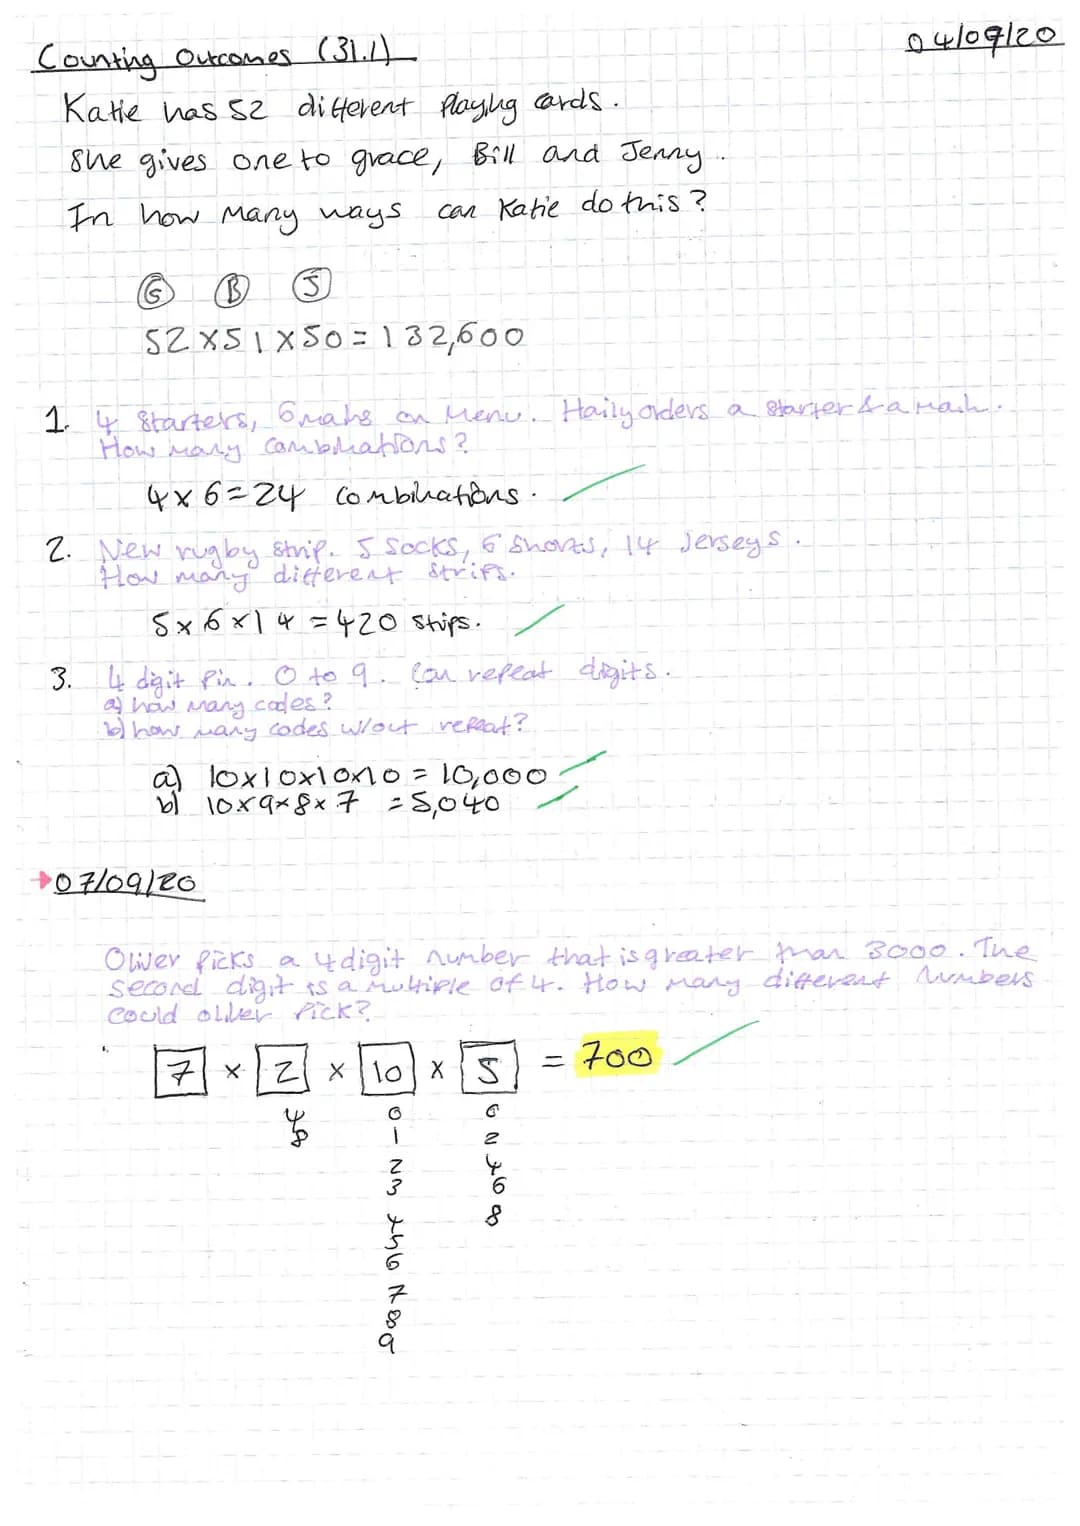 Counting Outcomes (31.1)
04/09/20
Katie has 52 different playing cards.
She gives one to grace, Bill and Jenny.
In how many ways can Katie do this?
G B J
52 x 51 x 50 = 132,600
1. 4 starters, 6 mains on menu. Haily orders a starter & a main.
How many combinations?
4 x 6 = 24 combinations.
2. New rugby strip. 5 socks, 6 shorts, 14 jerseys.
How many different strips.
5 x 6 x 14 = 420 strips.
3. 4 digit pin. 0 to 9. Can repeat digits.
a) how many codes?
b) how many codes w/out repeat?
a) 10x10x10x10 = 10,000
b) 10x9x8x7 = 5,040
→07/09/20
Oliver picks a 4 digit number that is greater than 3000. The
second digit is a multiple of 4. How many different numbers
could oliver pick?
7 x 2 x 10 x 5 = 700
4 0 0
8 1 2
2 4
3 6
4 8
5
6
7
8
9